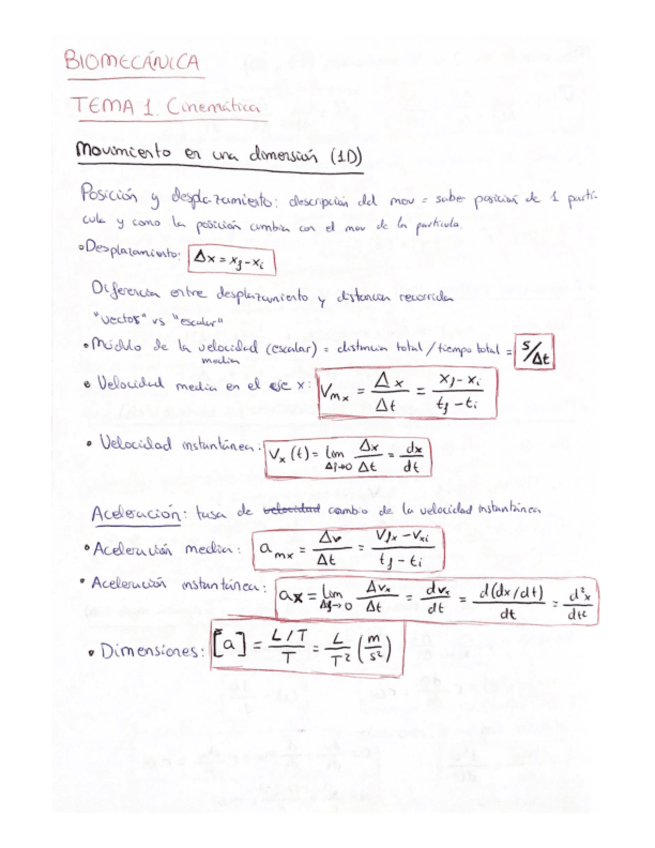 BIOMECÁNICA
TEMA 1. Cinemática
Movimiento en una dimensión (1D)
Posición y desplazamiento: descripción del mov = saber posición de 1 partí-
cula y como la posición cambia con el mov de la partícula.
• Desplazamiento: Δx = xf - xi
Diferencia entre desplazamiento y distancia recorrida
"vector" vs "escalar"
• Módulo de la velocidad media (escalar) = distancia total / tiempo total = s/Δt
• Velocidad media en el eje x: Vmx = Δx/Δt = (xf - xi)/(tf - ti)
• Velocidad instantánea: Vx (t) = lim Δt→0 Δx/Δt = dx/dt
Aceleración: tasa de velocidad cambio de la velocidad instantánea
• Aceleración media: amx = Δv/Δt = (Vfx - Vxi)/(tf - ti)
• Aceleración instantánea: ax = lim Δt→0 ΔVx/Δt = dvx/dt = d(dx/dt)/dt = d²x/dt²
• Dimensiones: [a] = L/T/T = L/T² (m/s²)